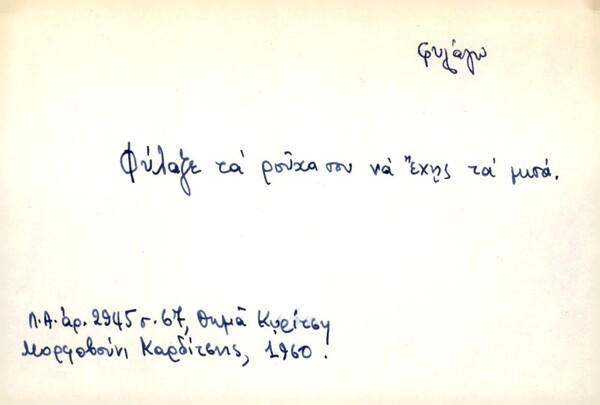 φυλάγω
Φύλαξε τά ροῦχα σου νά ἔχῃς τά μισά.
Λ.Α. ἀρ. 2945 σ. 67, Θωμᾶ Κυρίτση
Μορφοβούνι Καρδίτσης, 1960.